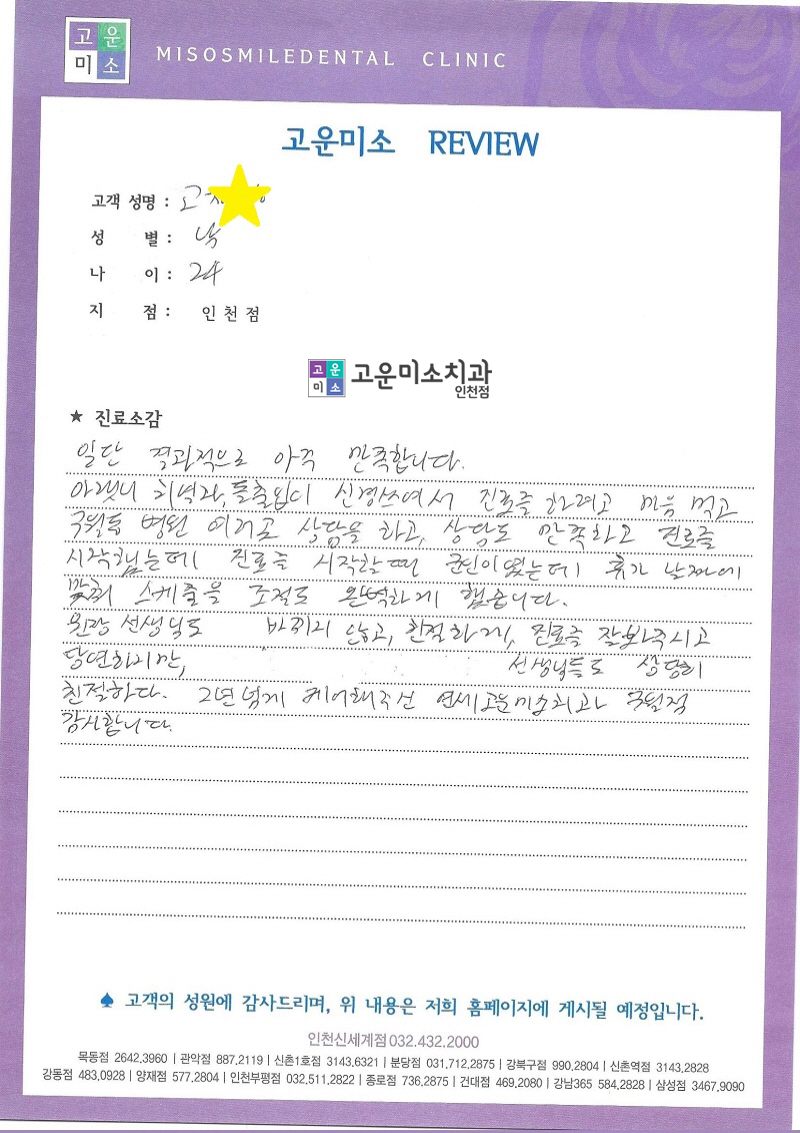 고운
미소
MISOSMILEDENTAL CLINIC
고운미소 REVIEW
고객 성명 : 고
성 별 : 남
나 이 : 24
지 점 : 인천점
고운
미소
고운미소치과
인천점
★ 진료소감
일단 결과적으로 아주 만족합니다.
아랫니 치열과, 돌출입이 신경쓰여서 진료를 하려고 마음 먹고
병원 여러곳 상담을 하고, 상담도 만족하고 진료를
시작했는데 진료를 시작할때 군인이였는데 휴가 날짜에
맞춰 스케줄을 조절도 완벽하게 했습니다.
원장 선생님도 바뀌지 않고, 친절하게, 진료를 잘봐주시고
당연하지만, 선생님들도 상당히
친절하다. 2년넘게 케어해주신 연세고운미소치과
감사합니다.
♠ 고객의 성원에 감사드리며, 위 내용은 저희 홈페이지에 게시될 예정입니다.
인천신세계점 032.432.2000
목동점 2642.3960 | 관악점 887.2119 | 신촌1호점 3143.6321 | 분당점 031.712.2875 | 강북구점 990.2804 | 신촌역점 3143.2828
강동점 483.0928 | 양재점 577.2804 | 인천부평점 032.511.2822 | 종로점 736.2875 | 건대점 469.2080 | 강남365 584.2828 | 삼성점 3467.9090